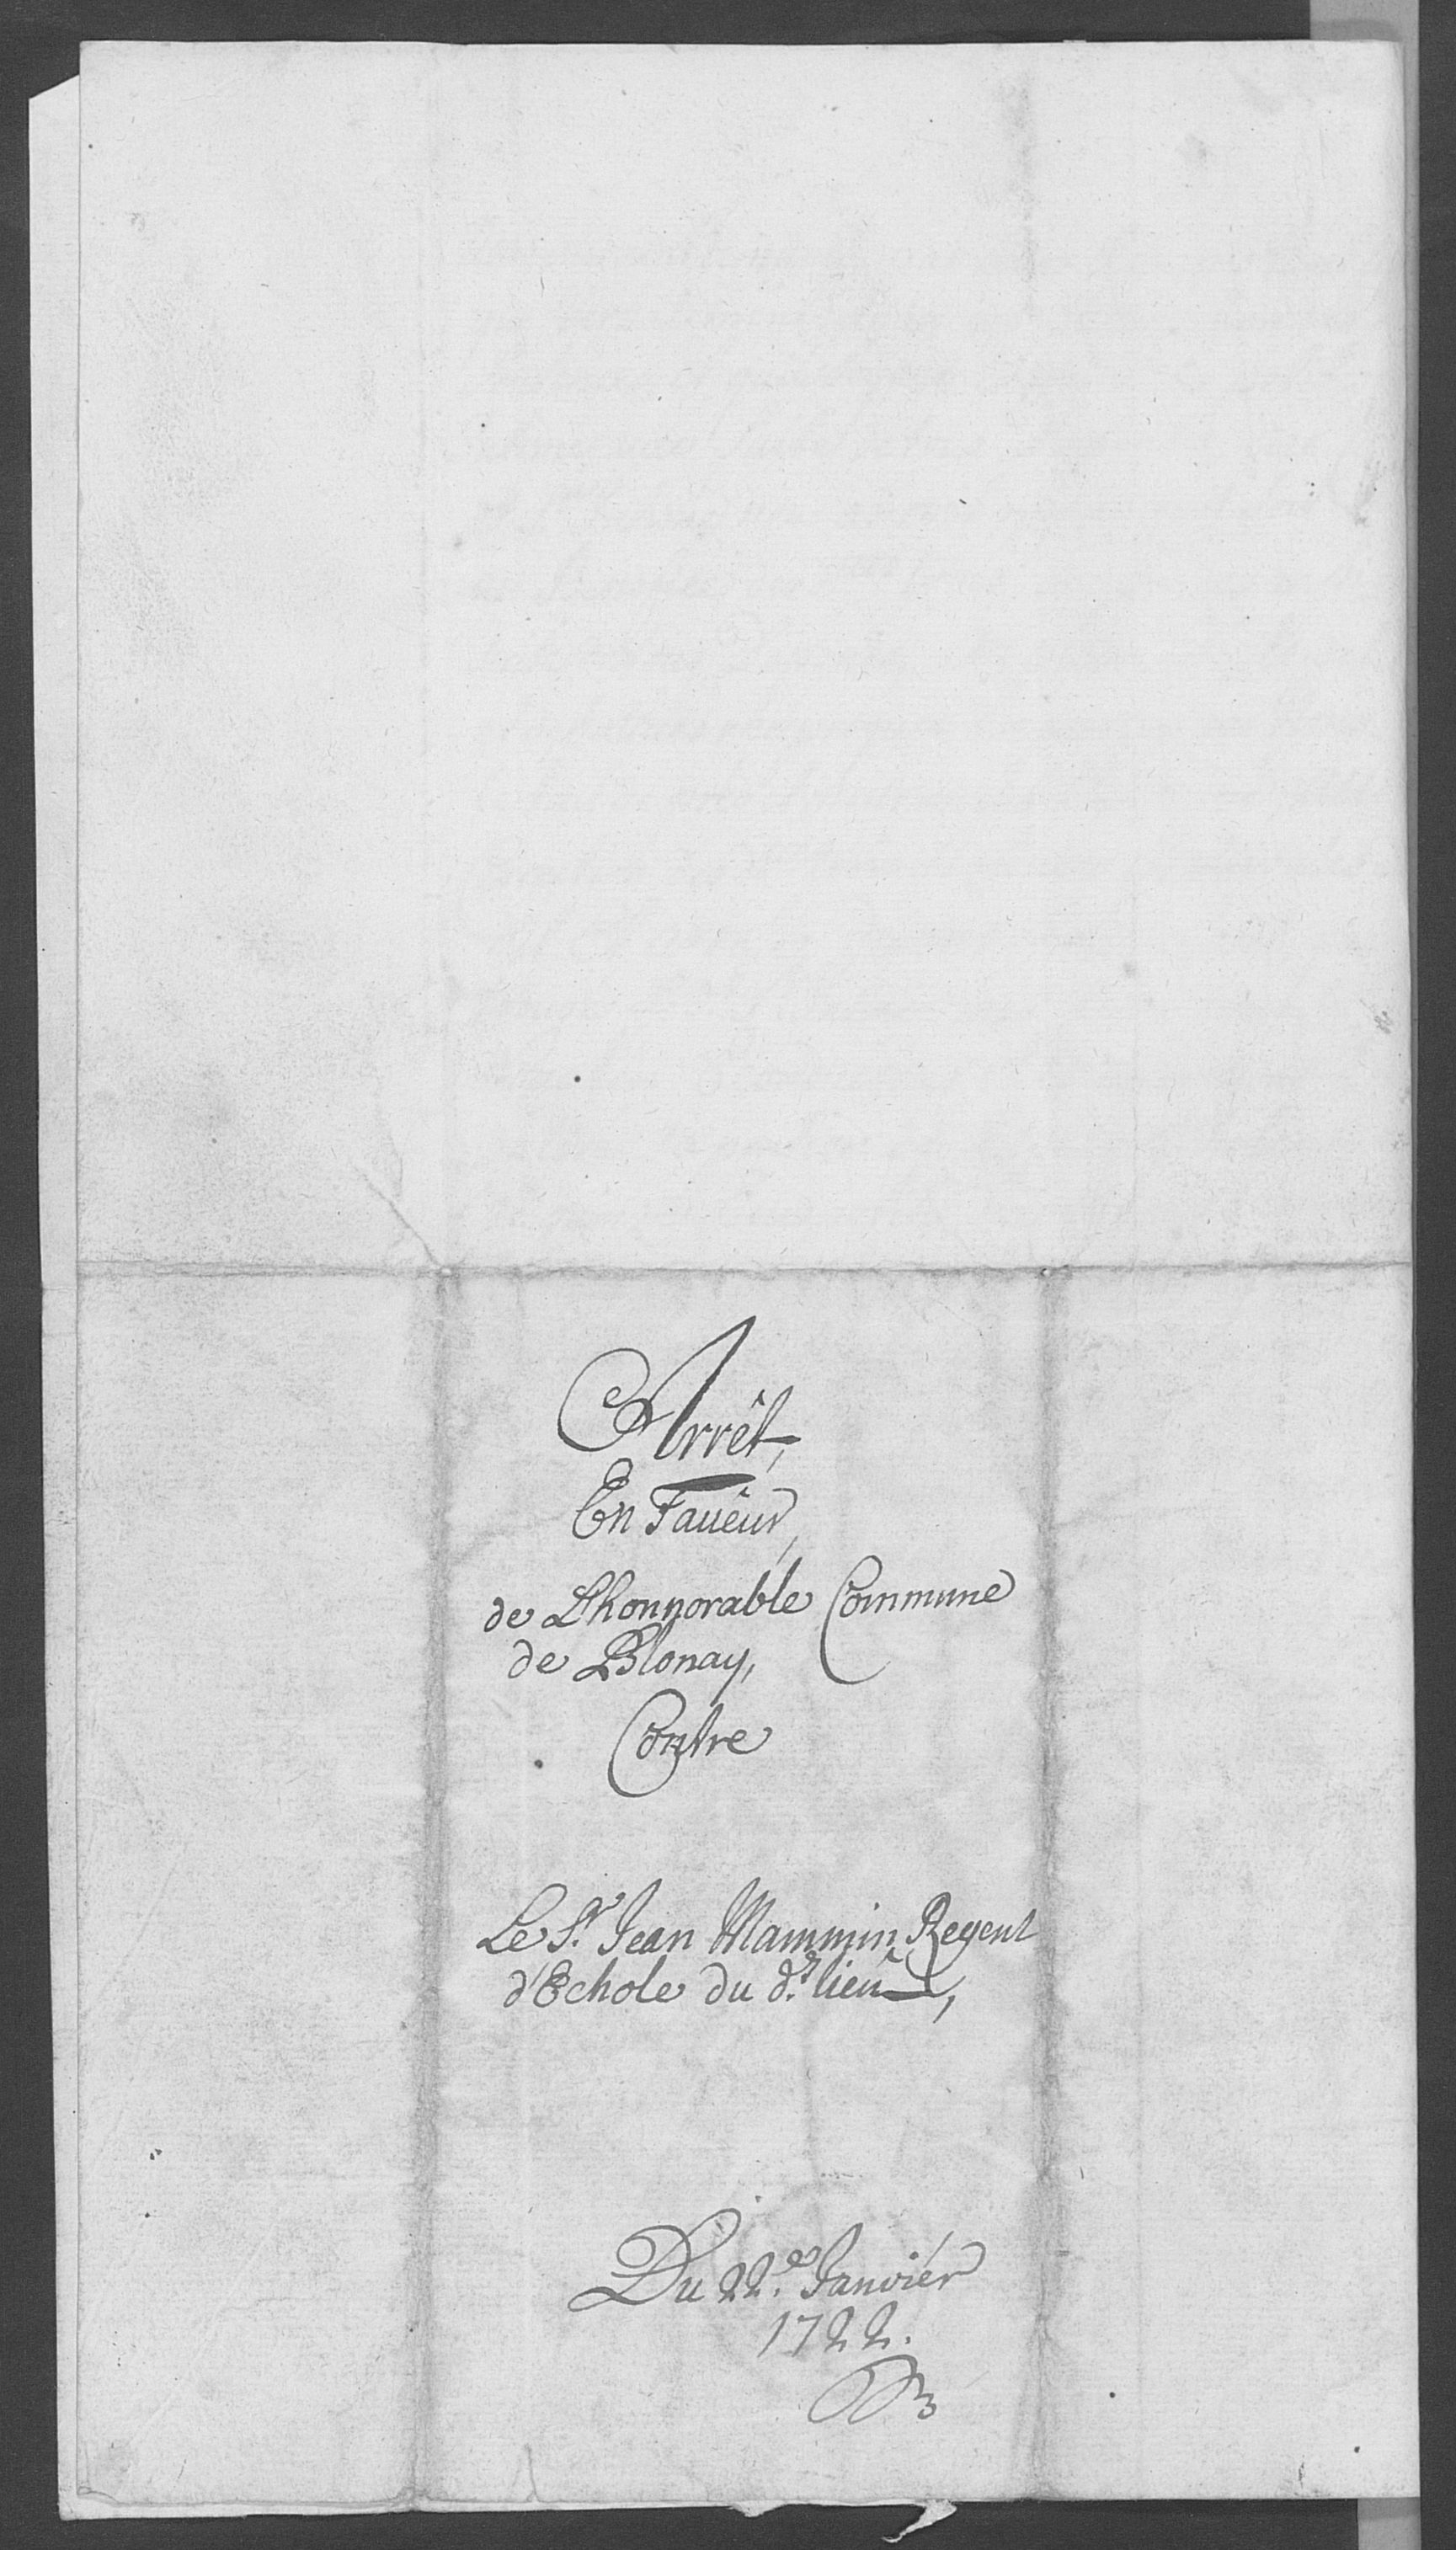 Arrêt,
En Faueur,
de Lhonnorable Commune
de Blonay,
Contre
Le S.r Jean Mammin Regent
d'Echole du d.t lieu,
Du 22.e Janvier
1722.